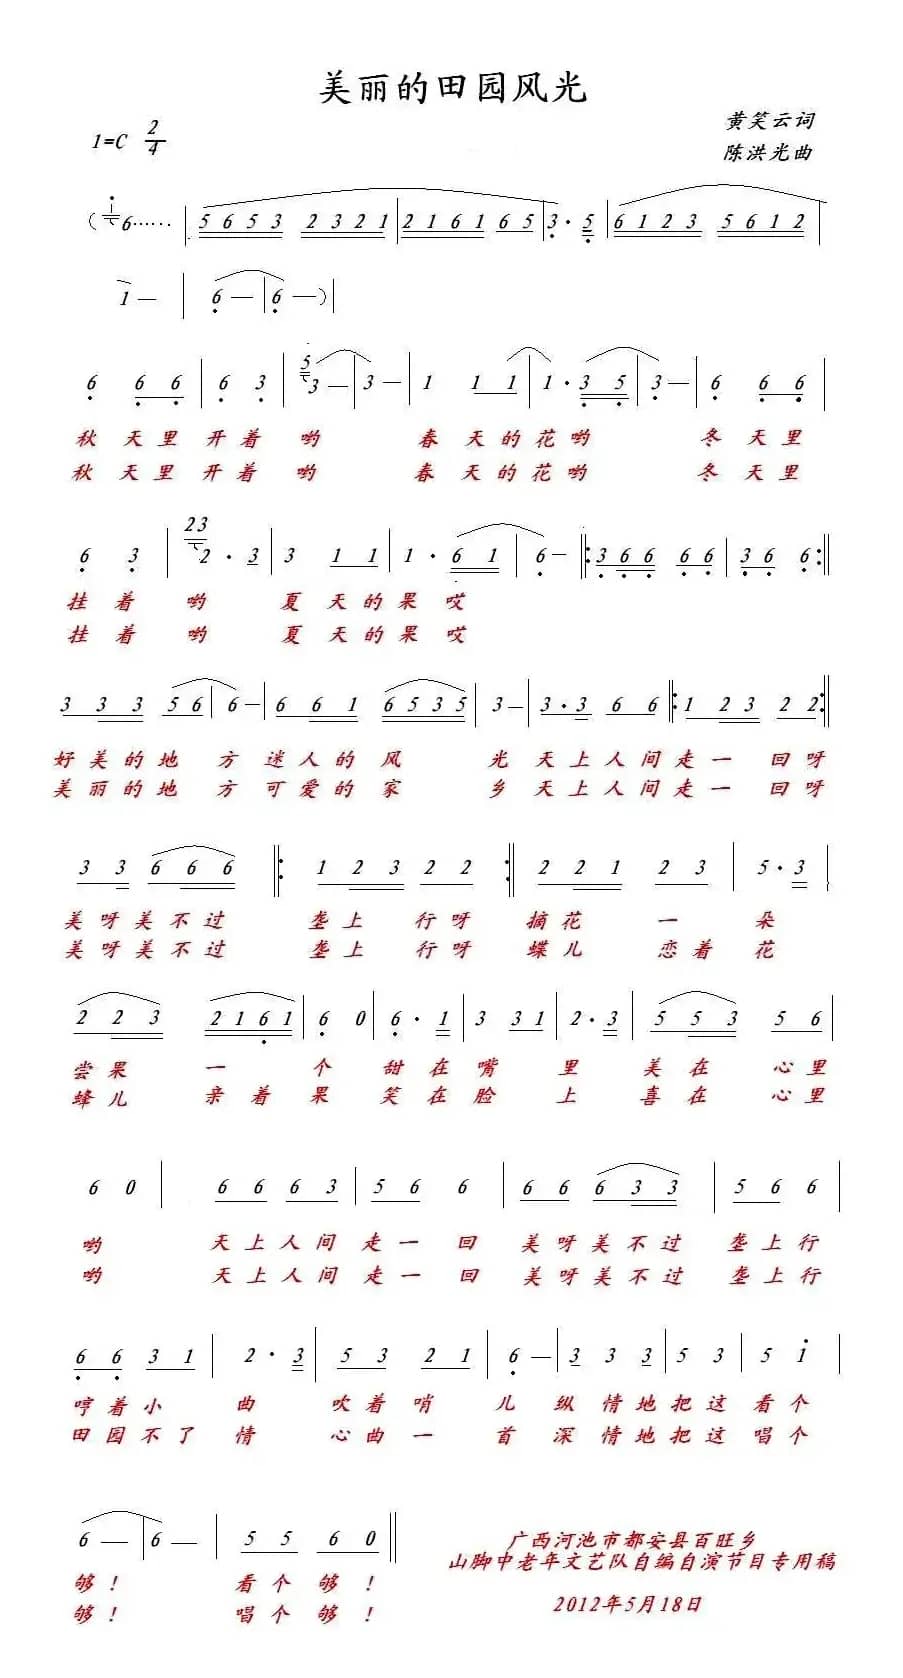 美丽的田园风光
黄笑云词
1=C 2/4
陈洪光曲
( i 6······ | 5 6 5 3 2 3 2 1 | 2 1 6 1 6 5 | 3 · 5 | 6 1 2 3 5 6 1 2 |
1 — | 6 — | 6 — ) |
6 6 6 | 6 3 | 5 3 — | 3 — | 1 1 1 | 1 · 3 5 | 3 — | 6 6 6 |
秋 天 里 开 着 哟 春 天 的 花 哟 冬 天 里
秋 天 里 开 着 哟 春 天 的 花 哟 冬 天 里
6 3 | 23 2 · 3 | 3 1 1 | 1 · 6 1 | 6 — |: 3 6 6 6 6 | 3 6 6 :|
挂 着 哟 夏 天 的 果 哎
挂 着 哟 夏 天 的 果 哎
3 3 3 5 6 | 6 — | 6 6 1 6 5 3 5 | 3 — | 3 · 3 6 6 |: 1 2 3 2 2 :|
好 美 的 地 方 迷 人 的 风 光 天 上 人 间 走 一 回 呀
美 丽 的 地 方 可 爱 的 家 乡 天 上 人 间 走 一 回 呀
3 3 6 6 6 |: 1 2 3 2 2 :| 2 2 1 2 3 | 5 · 3 |
美 呀 美 不 过 垄 上 行 呀 摘 花 一 朵
美 呀 美 不 过 垄 上 行 呀 蝶 儿 恋 着 花
2 2 3 2 1 6 1 | 6 0 | 6 · 1 | 3 3 1 | 2 · 3 | 5 5 3 5 6 |
尝 果 一 个 甜 在 嘴 里 美 在 心 里
蜂 儿 亲 着 果 笑 在 脸 上 喜 在 心 里
6 0 | 6 6 6 3 | 5 6 6 | 6 6 6 3 3 | 5 6 6 |
哟 天 上 人 间 走 一 回 美 呀 美 不 过 垄 上 行
哟 天 上 人 间 走 一 回 美 呀 美 不 过 垄 上 行
6 6 3 1 | 2 · 3 | 5 3 2 1 | 6 — | 3 3 3 | 5 3 | 5 i |
哼 着 小 曲 吹 着 哨 儿 纵 情 地 把 这 看 个
田 园 不 了 情 心 曲 一 首 深 情 地 把 这 唱 个
6 — | 6 — | 5 5 6 0 ||
够！ 看 个 够！
够！ 唱 个 够！
广西河池市都安县百旺乡
山脚中老年文艺队自编自演节目专用稿
2012年5月18日